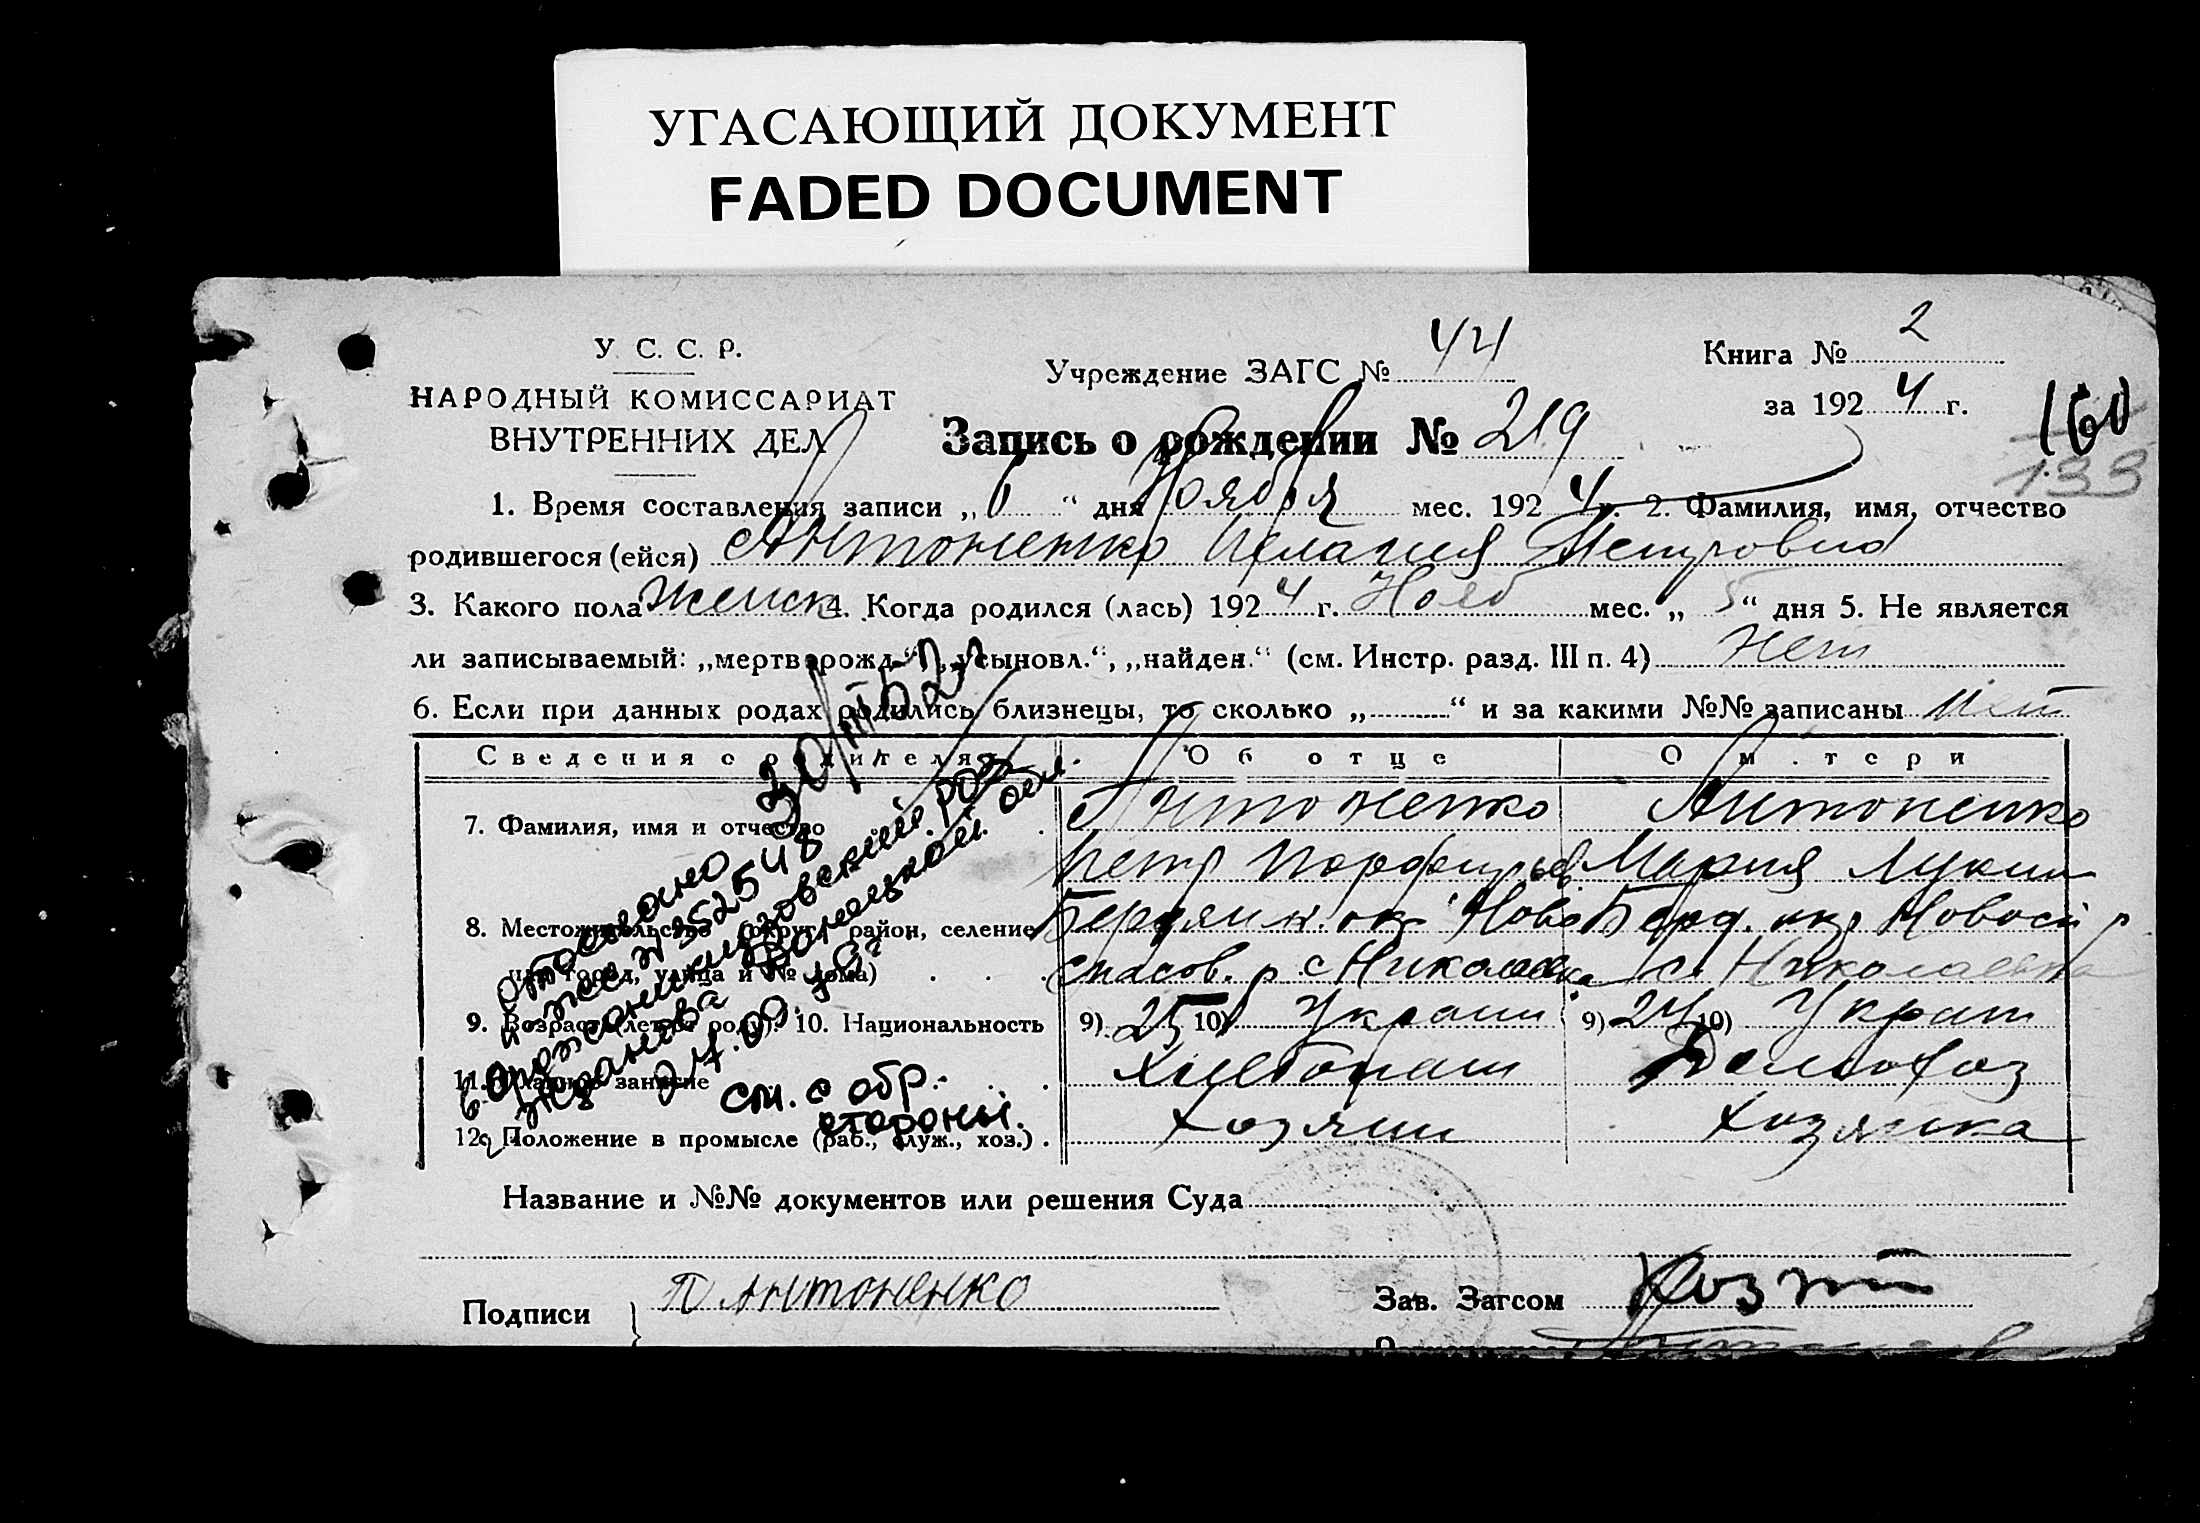 УГАСАЮЩИЙ ДОКУМЕНТ
FADED DOCUMENT
У. С. С. Р.
НАРОДНЫЙ КОМИССАРИАТ
ВНУТРЕННИХ ДЕЛ
Учреждение ЗАГС № 44
Книга № 2
за 1924 г.
160
133
Запись о рождении № 219
1. Время составления записи „6“ дня Ноября мес. 1924 г. 2. Фамилия, имя, отчество
родившегося (ейся) Антоненко Пелагия Петровна
3. Какого пола женск 4. Когда родился (лась) 1924 г. Нояб мес. „5“ дня 5. Не является
ли записываемый: „мертворожд.“, „усыновл.“, „найден.“ (см. Инстр. разд. III п. 4) нет
6. Если при данных родах родились близнецы, то сколько „ “ и за какими №№ записаны нет
Сведения о родителях Об отце О матери
7. Фамилия, имя и отчество Антоненко Антоненко
Петр Порфирьев. Мария Лукин
8. Местожительство (округ, район, селение Бердянск. ок Ново Берд. окр Новосп р
или город, улица и № дома) спасов. р с Николаевка с. Николаевка
9. Возраст (лет от роду). 10. Национальность 9) 25 10) Украин 9) 24 10) Украин
11. Главное занятие Хлебопаш Домохоз
12. Положение в промысле (раб., служ., хоз.) Хозяин Хозяйка
Отослано
352548
Орджоникидзовский рай
Жданова Донецкой обл.
см. с обр.
стороны.
Название и №№ документов или решения Суда
Подписи } П Антоненко Зав. Загсом